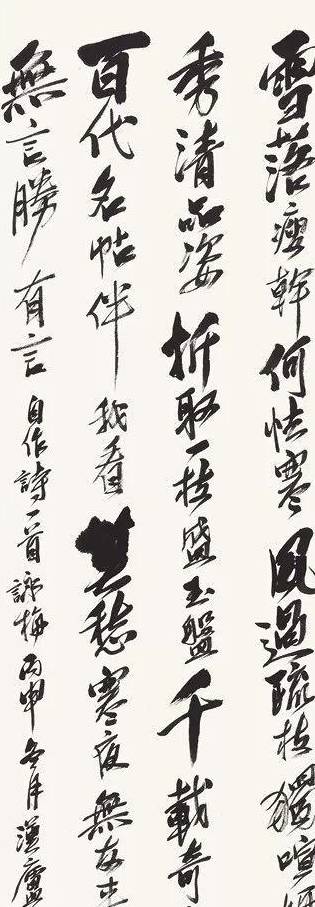 雪落瘦幹何怯寒風過疏枝獨喧妍
秀清品姿折取一枝盛玉盤千載奇
百代名帖伴我看莫愁寒夜無友來
無言勝有言自作詩一首詠梅丙申冬月漢廬